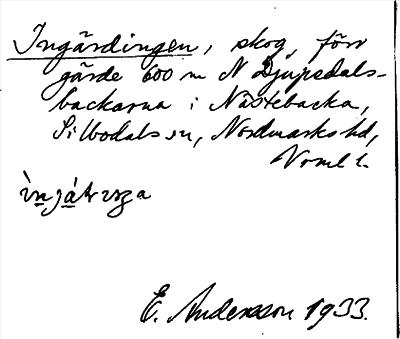 Ingärdingen, skog, förr
gärde 600 m N Djupsdals-
backarna i Nästebacka,
Silbodals sn, Nordmarks hd,
Värml l.
E. Andersson 1933.